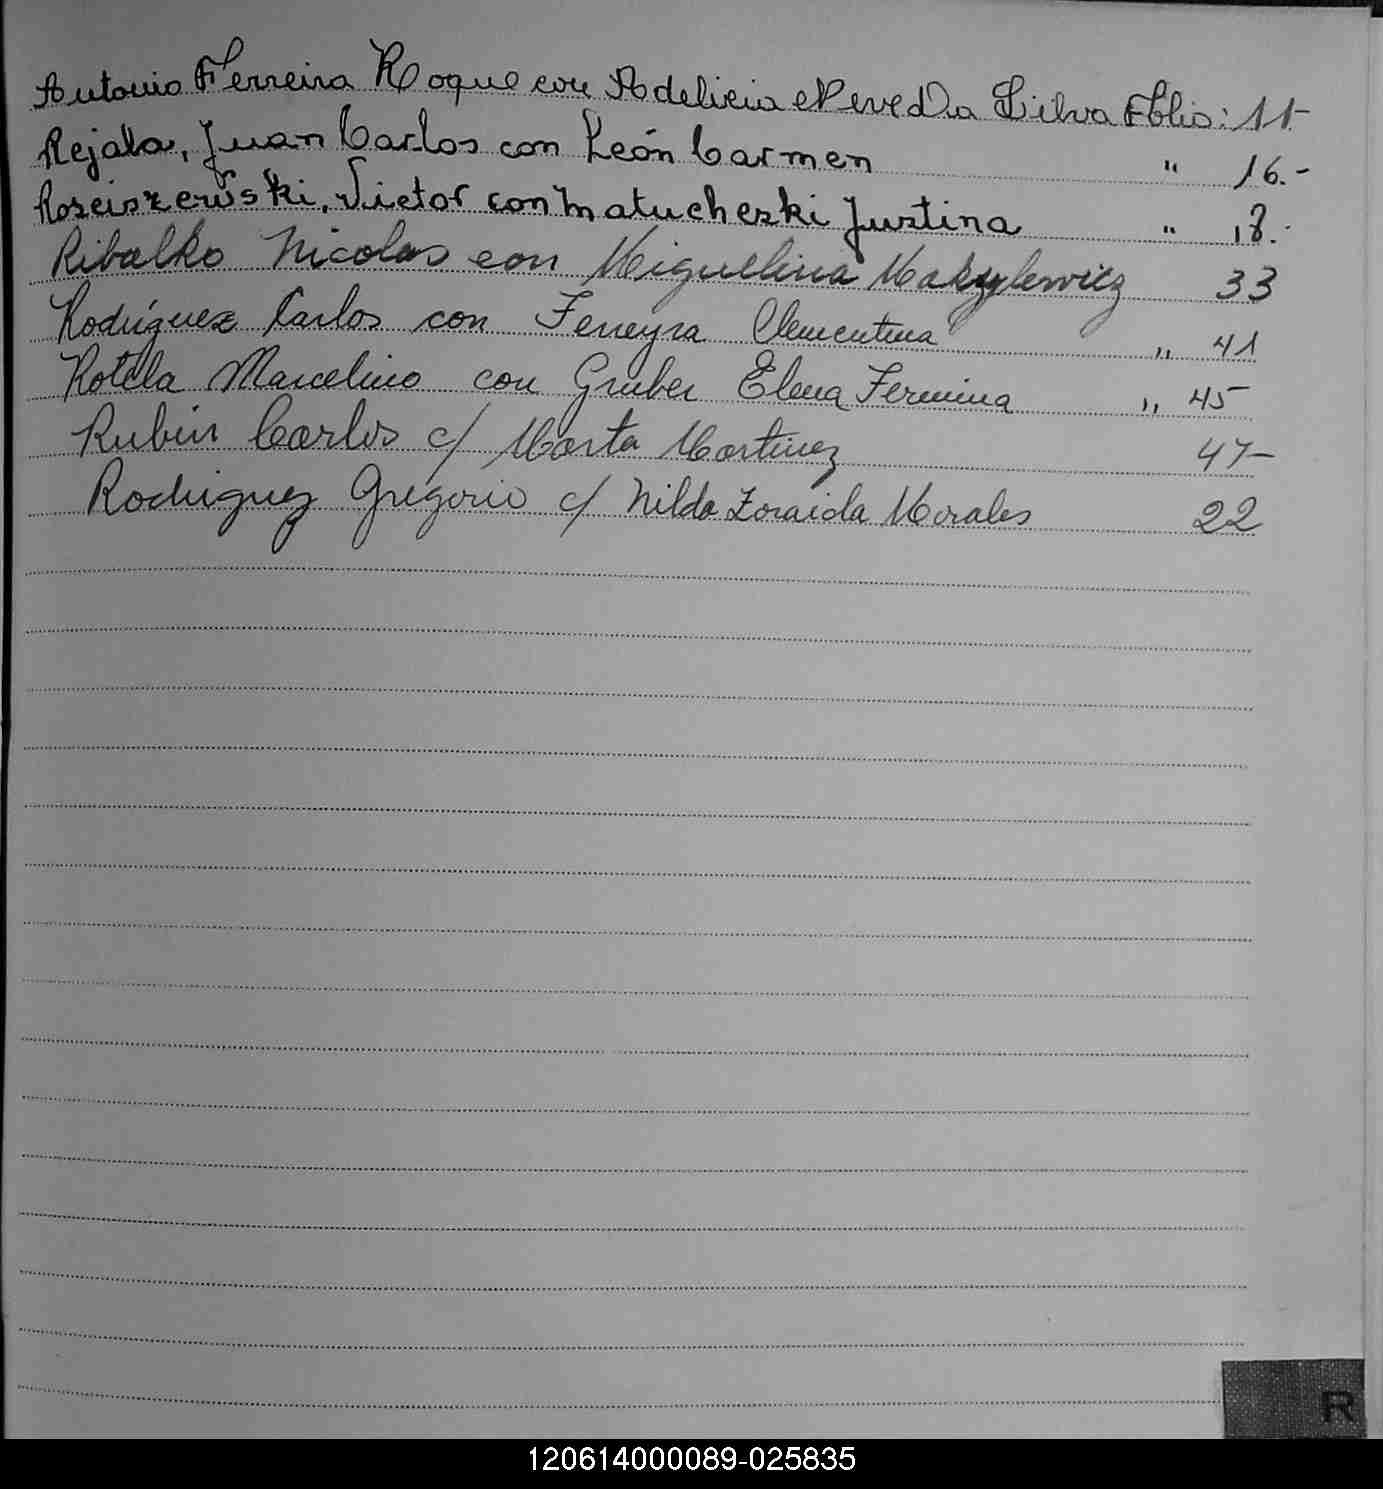 Antonio Ferreira Roque con Adelicia Neve Da Silva Folio: 11-
Rejala, Juan Carlos con León Carmen " 16.-
Rosciszewski, Victor con Matucheski Justina " 18.-
Ribalko Nicolas con Miguelina Makzylewicz 33
Rodríguez Carlos con Ferreyra Clementina " 41
Rotela Marcelino con Gruber Elena Fermina " 45
Rubin Carlos c/ Marta Martinez 47-
Rodriguez Gregorio c/ Nilda Zoraida Morales 22
R
120614000089-025835